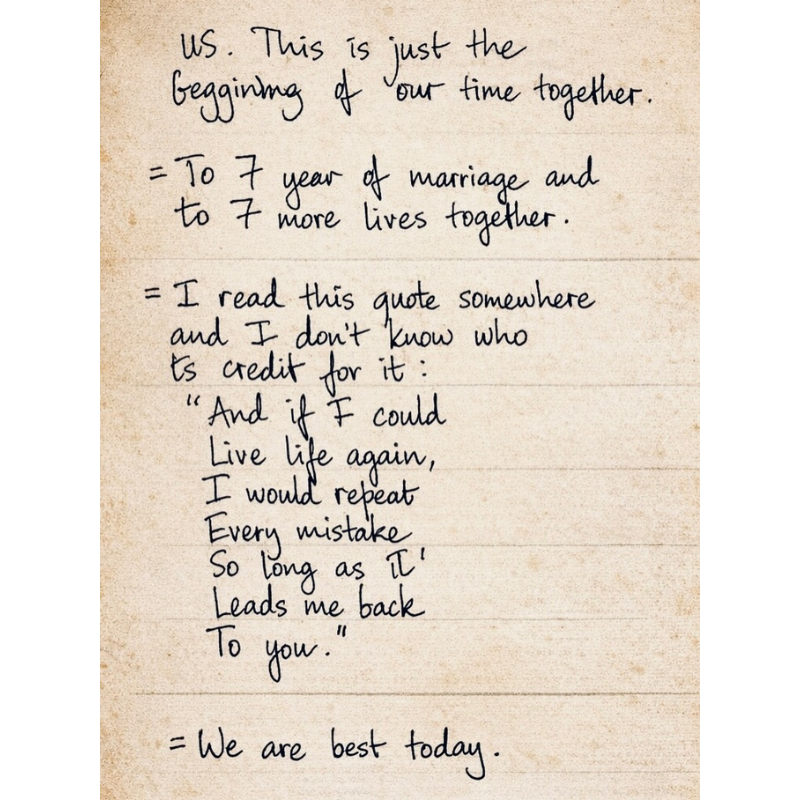 us. This is just the
Beggining of our time together.
= To 7 year of marriage and
to 7 more lives together.
= I read this quote somewhere
and I don't know who
ts credit for it :
"And if I could
Live life again,
I would repeat
Every mistake
So long as II'
Leads me back
To you."
= We are best today.